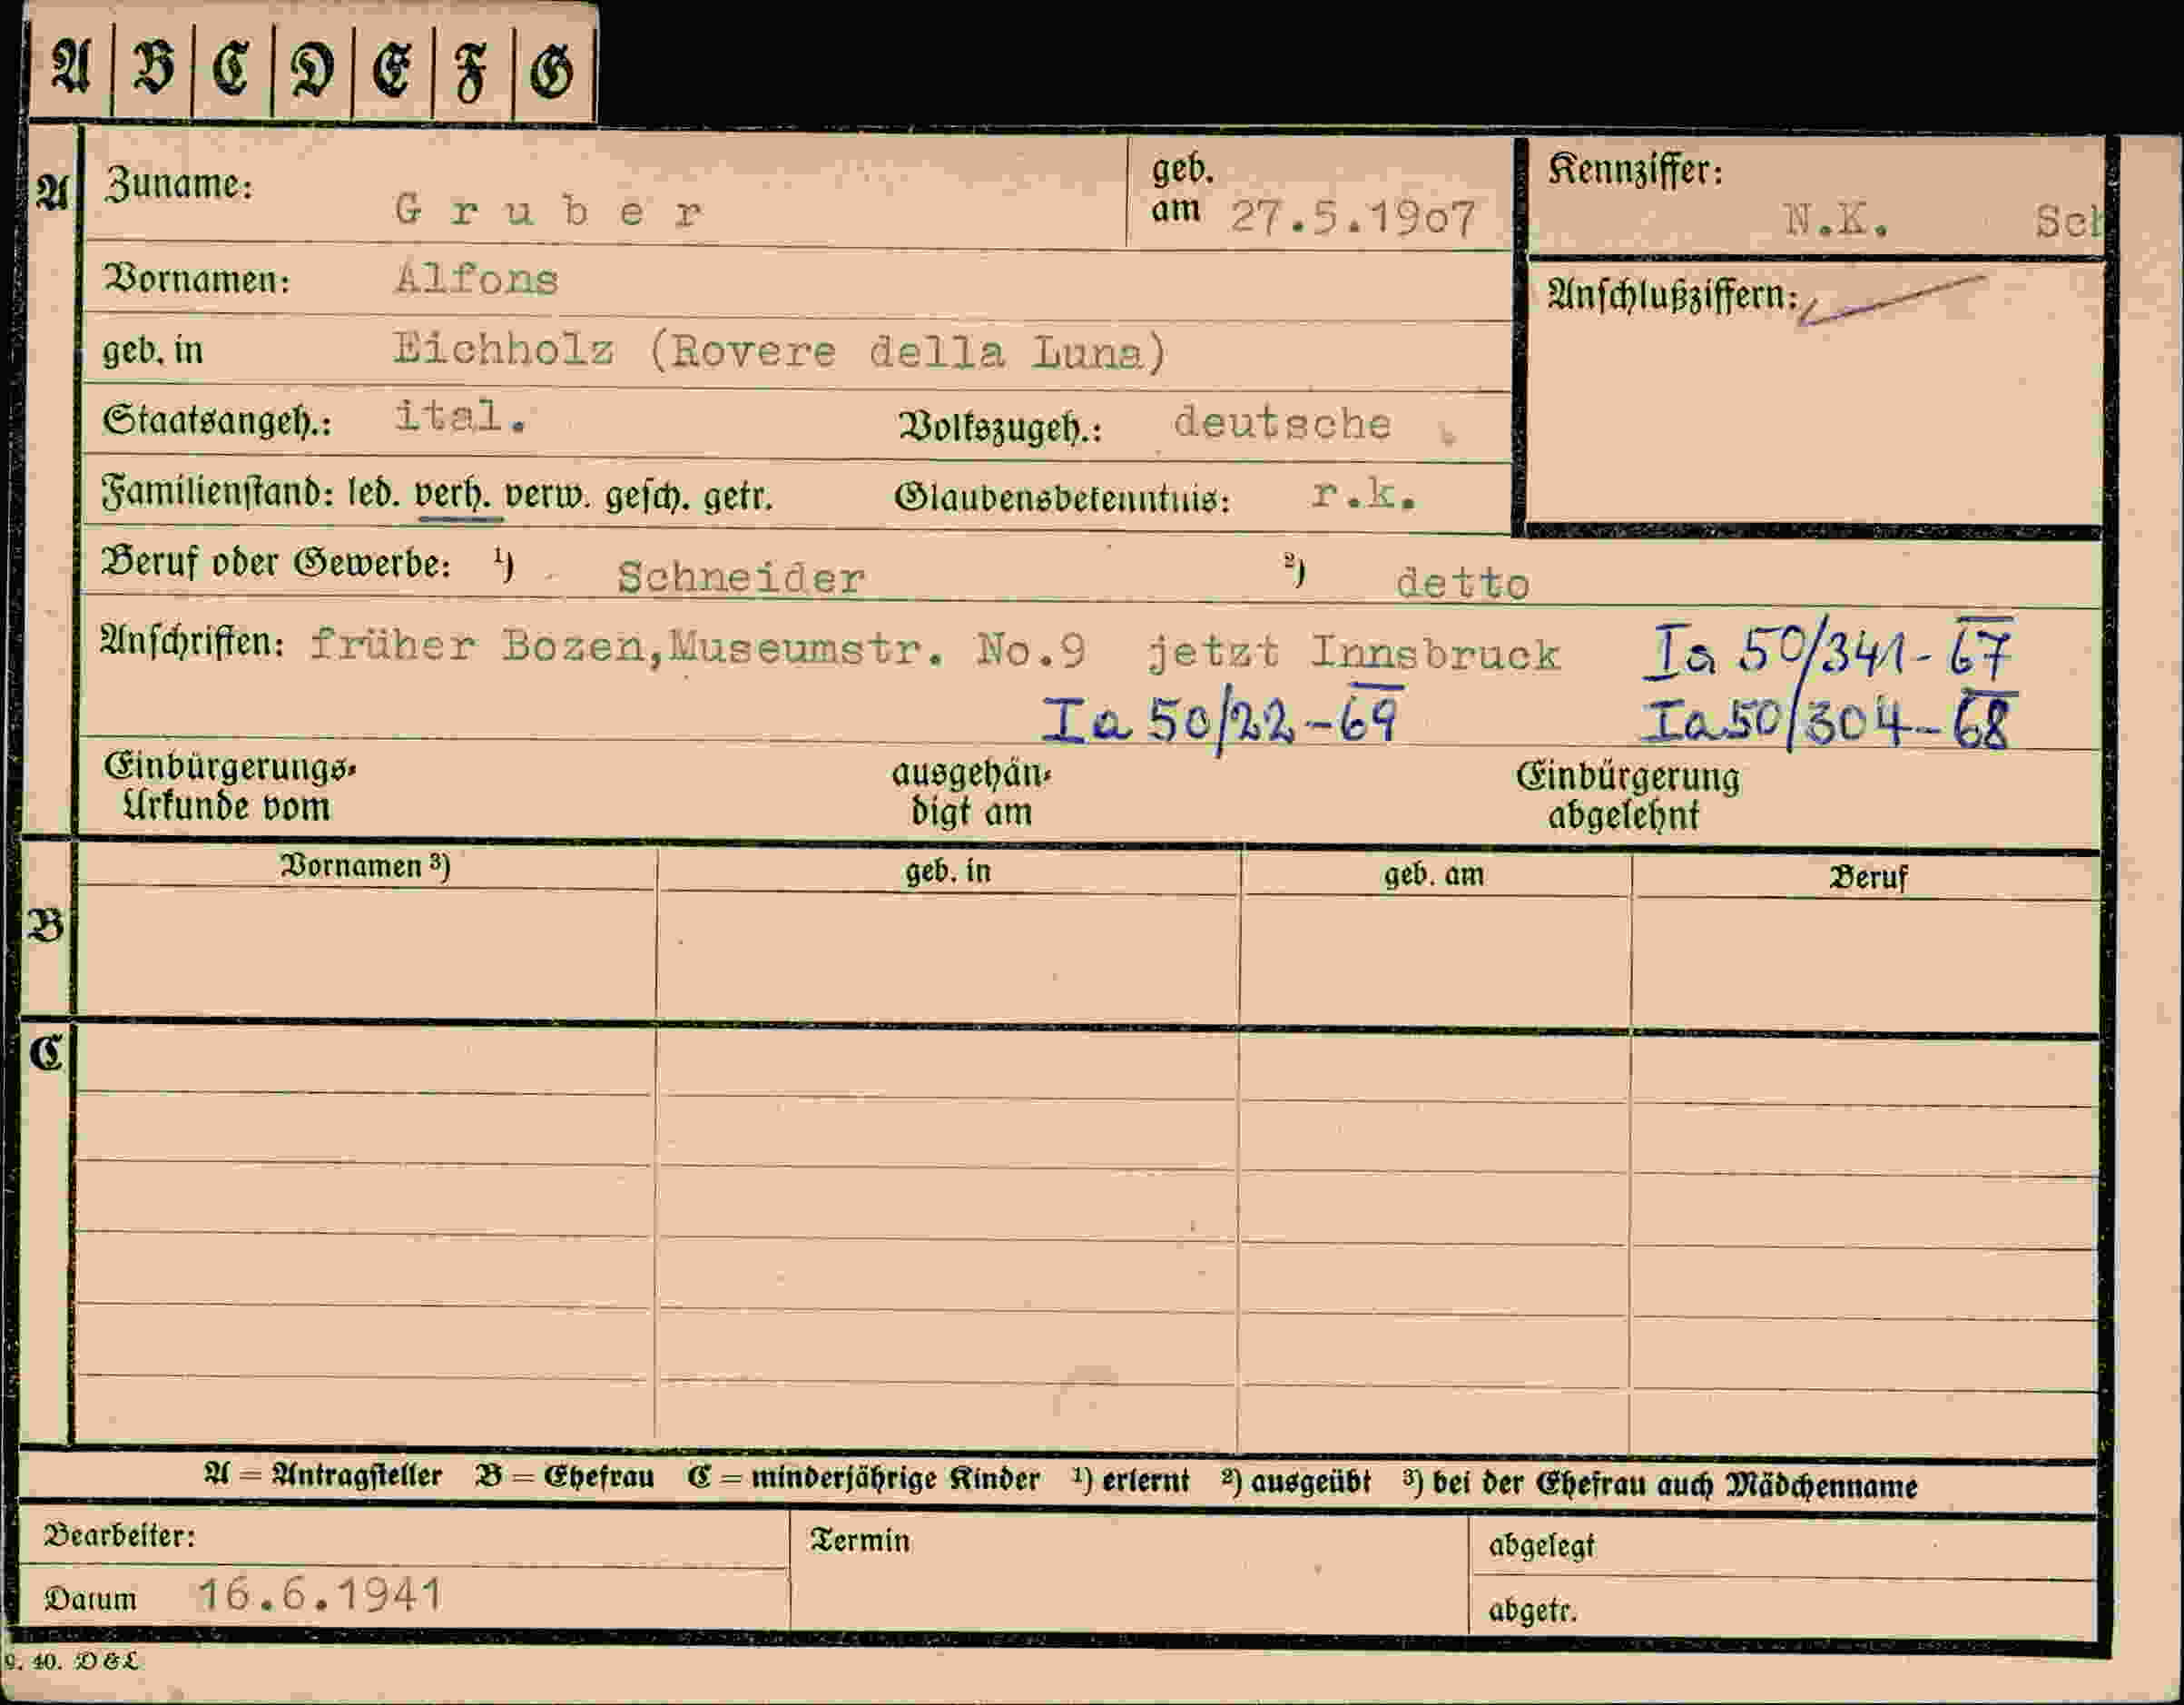 A B C D E F G
A Zuname: Gruber geb. am 27.5.1907 Kennziffer: N.K. Sch
Vornamen: Alfons Anschlußziffern:
geb. in Eichholz (Rovere della Luna)
Staatsangeh.: ital. Volkszugeh.: deutsche
Familienstand: led. verh. verw. gesch. getr. Glaubensbekenntnis: r.k.
Beruf oder Gewerbe: ¹) Schneider ²) detto
Anschriften: früher Bozen,Museumstr. No.9 jetzt Innsbruck Ia 50/341-67
Ia 50/22-69 Ia 50/304-68
Einbürgerungs- ausgehän- Einbürgerung
Urkunde vom digt am abgelehnt
Vornamen ³) geb. in geb. am Beruf
B
C
A = Antragsteller B = Ehefrau C = minderjährige Kinder ¹) erlernt ²) ausgeübt ³) bei der Ehefrau auch Mädchenname
Bearbeiter: Termin abgelegt
Datum 16.6.1941 abgetr.
9. 40. D & L